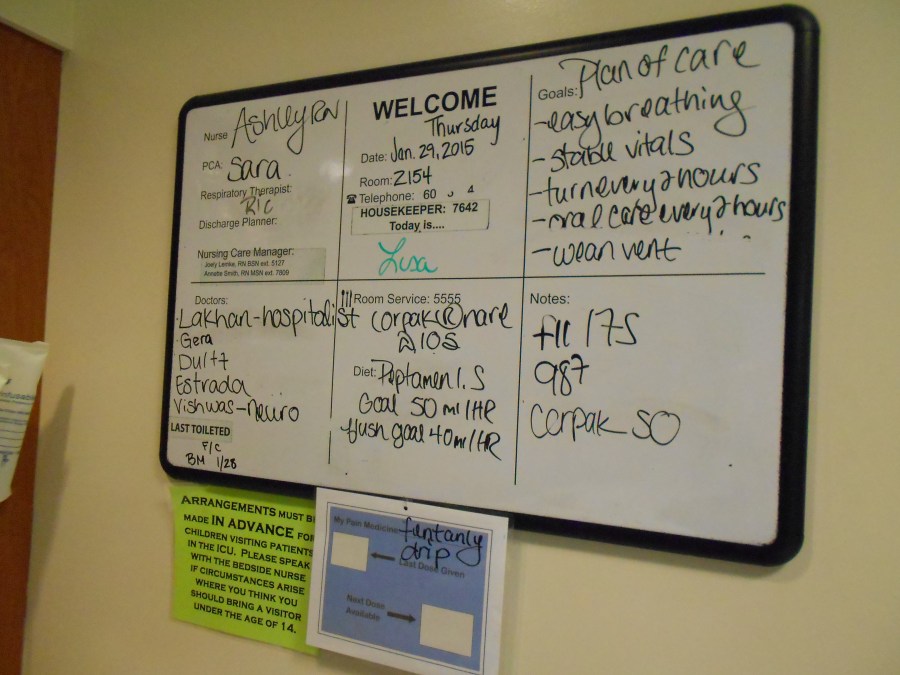 Nurse Ashley RN
PCA: Sara
Respiratory Therapist:
Ric
Discharge Planner:
Nursing Care Manager:
Joely Lemke, RN BSN ext. 5127
Annette Smith, RN MSN ext. 7809
WELCOME
Thursday
Date: Jan. 29, 2015
Room: 2154
Telephone: 60 4
HOUSEKEEPER: 7642
Today is....
Lisa
Goals: Plan of care
-easy breathing
-stable vitals
-turn every 2 hours
-oral care every 2 hours
-wean vent
Doctors:
-Lakhan-hospitalist
Gera
Estrada
Vishwas-neuro
LAST TOILETED
F/C
BM 1/28
Room Service: 5555
corpak Ⓡ nare
@ 105
Diet: Peptamen 1.5
Goal 50 ml/HR
flush goal 40ml/HR
Notes:
175
987
Corpak 50
ARRANGEMENTS MUST BE
MADE IN ADVANCE FOR
CHILDREN VISITING PATIENTS
IN THE ICU. PLEASE SPEAK
WITH THE BEDSIDE NURSE
IF CIRCUMSTANCES ARISE
WHERE YOU THINK YOU
SHOULD BRING A VISITOR
UNDER THE AGE OF 14.
My Pain Medicine funtanly
drip
Last Dose Given
Next Dose
Available